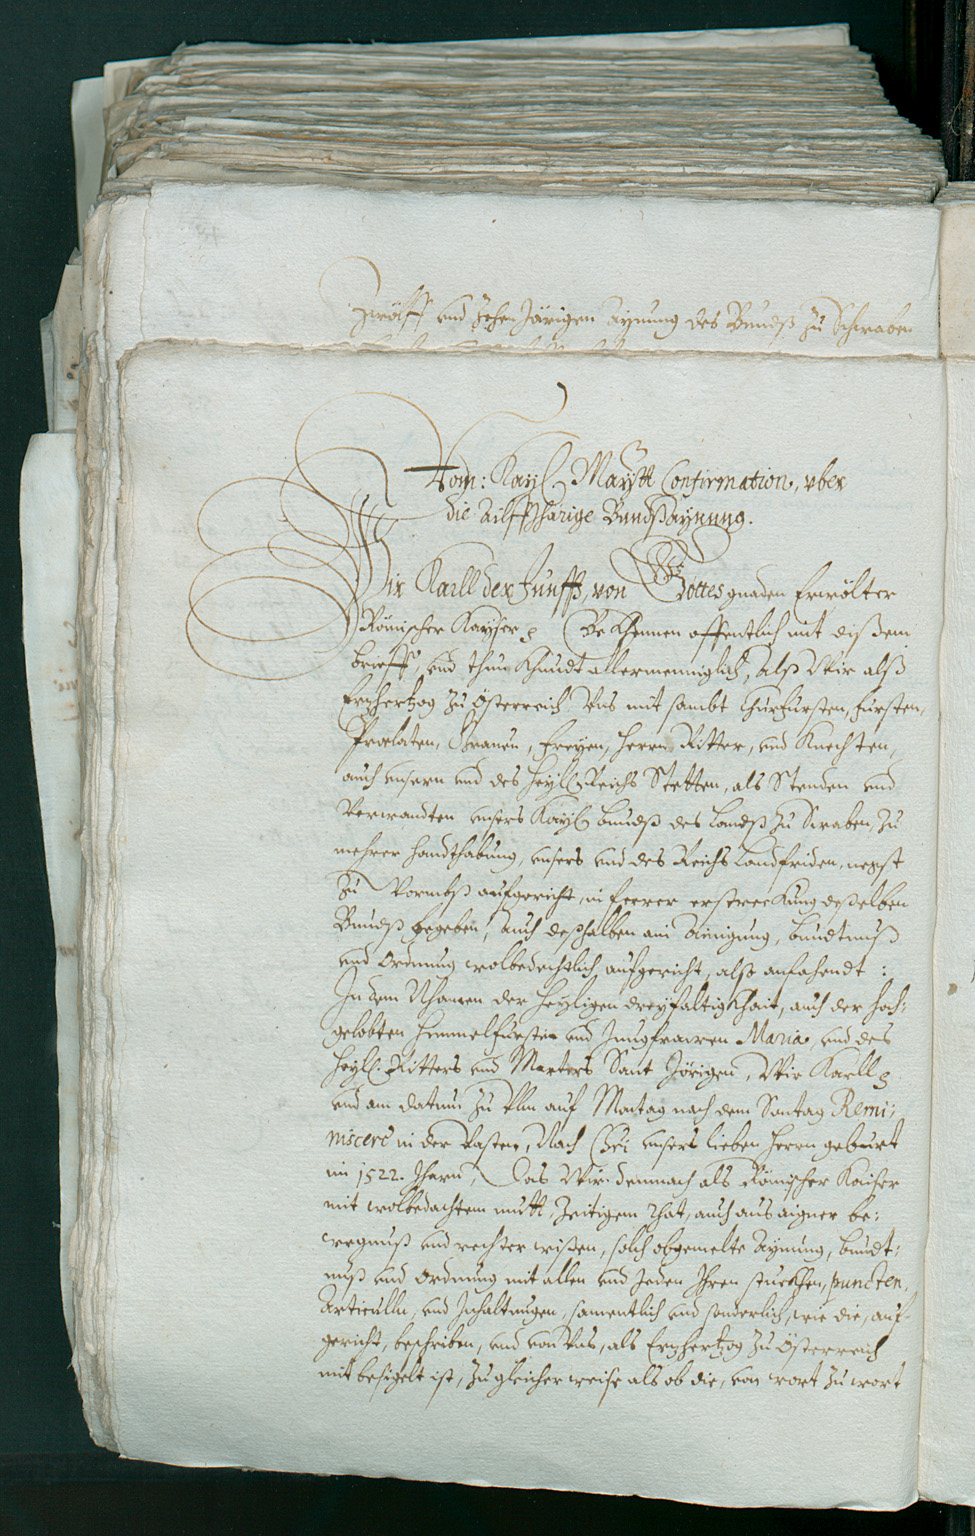 Zwölff und Zehen Järigen aynung des Bundß zu Schwaben
Röm: Kayß. Maytt Confirmation, uber
die Ailffjharige Bundßaynung.
Wir Karll der Funfft, von Gottes gnaden Erwölter
Römischer Kayser etc. Bekhennen offentlich mit dißem
brieff, und thun khundt allermenniglich, Alß Wir alß
Ertzhertzog zu Österreich Uns mit sambt Churfursten, Fursten,
Prelaten, Graven, Freyen, Herrn Ritter, und Knechten,
auch unsern und des heyl. Reichs Stetten, als Stenden und
Verwandten unsers Kayß Bundß des Landß zu Swaben, zu
mehrer handthabung, unsers und des Reichs Landfriden, negst
zu Wormbß aufgericht, in ferrer erstreckung deßelben
Bundß begeben, auch deßhalben ain Ainigung, Bundtnuß
und Ordnung wolbedechtlich aufgericht, alßo anfahendt :
In dem Nhamen der heyligen dreyfaltigkhait, auch der hoch-
gelobten himmelfurstin und Jungfrawen Maria, und des
heyl. Ritters und Marters Sant Jörigen, Wir Karll etc
und am datum zu Ulm auf Montag nach dem Sontag Remi-
niscere in der Vasten, Nach Cristi unsers lieben Herrn geburt
im 1522. Jharn, Das Wir demnach als Römischer Kaiser
mit wolbedachtem mutt, zeitigem Rhat, auch aus aigner be-
wegnuß und rechter wißen, solch obgemelte Aynung, Bundt-
nuß und Ordnung mit allen und Jeden Ihren stuckhen, puncten,
Articulln, und Inhaltungen, samentlich und sonderlich, wie die, auf-
gericht, beschriben, und von Uns, als Ertzhertzog zu Österreich
mit besigelt ist, zu gleicher weise als ob die, von wort zu wort